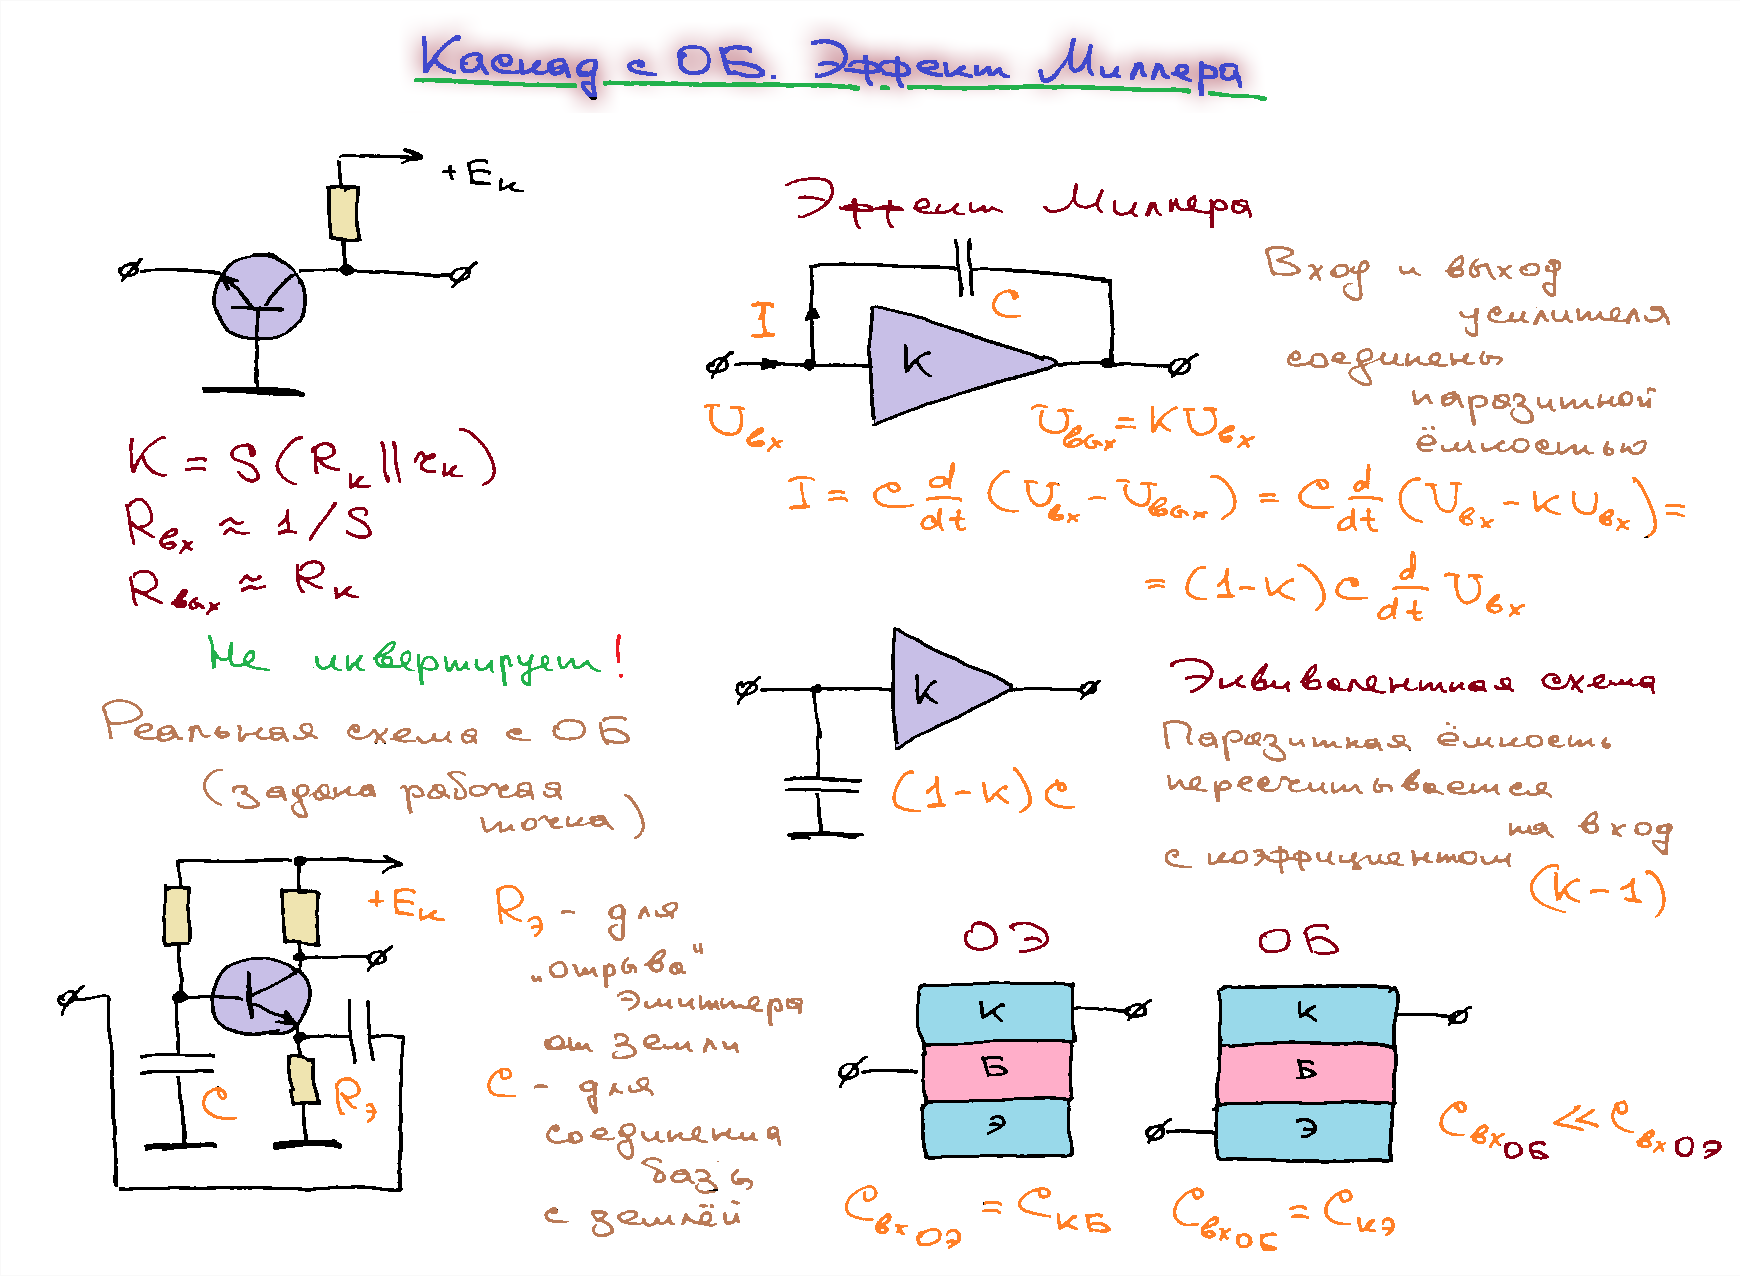 Каскад с ОБ. Эффект Миллера
+Eк
K = S(Rк||rк)
Rвх ≈ 1/S
Rвых ≈ Rк
Не инвертирует!
Реальная схема с ОБ
(задана рабочая
точка)
+Eк
C
Rэ
Rэ - для
„отрыва"
эмиттера
от земли
C - для
соединения
базы
с землёй
Эффект Миллера
C
I
K
Uвх
Uвых = KUвх
Вход и выход
усилителя
соединены
паразитной
ёмкостью
I = C d/dt (Uвх - Uвых) = C d/dt (Uвх - KUвх) =
= (1-K) C d/dt Uвх
K
(1-K)C
Эквивалентная схема
Паразитная ёмкость
пересчитывается
на вход
с коэффициентом
(K-1)
ОЭ
К
Б
Э
CвхОЭ = CКБ
ОБ
К
Б
Э
CвхОБ = CКЭ
CвхОБ ≪ CвхОЭ